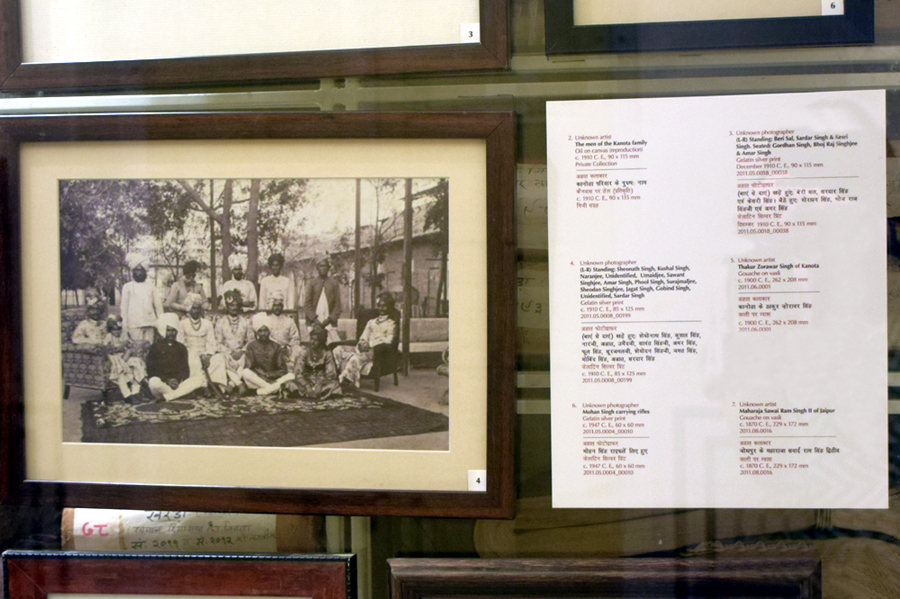 3
6
4
2. Unknown artist
The men of the Kanota family
Oil on canvas (reproduction)
c. 1910 C. E., 90 x 115 mm
Private Collection
अज्ञात कलाकार
कानोडा परिवार के पुरुष
c. 1910 C. E., 90 x 115 mm
निजी संग्रह
3. Unknown photographer
(L-R) Standing: Beri Sal, Sardar Singh & Kesri
Singh. Seated: Gordhan Singh, Bhoj Raj Singhjee
& Amar Singh
Gelatin silver print
December 1910 C. E., 90 x 115 mm
2011.05.0018_00038
अज्ञात फोटोग्राफर
(बाएं से दाएं) खड़े हुए: बेरी साल, सरदार सिंह
एवं केसरी सिंह। बैठे हुए: गोरधन सिंह, भोज राज
सिंहजी एवं अमर सिंह
जेलाटिन सिल्वर प्रिंट
दिसम्बर 1910 C. E., 90 x 115 mm
2011.05.0018_00038
4. Unknown photographer
(L-R) Standing: Sheonath Singh, Kushal Singh,
Naranjee, Unidentified, Umaidjee, Sawant
Singhjee, Amar Singh, Phool Singh, Surajmaljee,
Sheodan Singhjee, Jagat Singh, Gobind Singh,
Unidentified, Sardar Singh
Gelatin silver print
c. 1910 C. E., 85 x 125 mm
2011.05.0008_00199
अज्ञात फोटोग्राफर
(बाएं से दाएं) खड़े हुए: शेओनाथ सिंह, कुशल सिंह,
नारंजी, अज्ञात, उमैदजी, सावंत सिंहजी, अमर सिंह,
फूल सिंह, सूरजमलजी, शेओदान सिंहजी, जगत सिंह,
गोबिंद सिंह, अज्ञात, सरदार सिंह
जेलाटिन सिल्वर प्रिंट
c. 1910 C. E., 85 x 125 mm
2011.05.0008_00199
5. Unknown artist
Thakur Zorawar Singh of Kanota
Gouache on wasli
c. 1900 C. E., 262 x 208 mm
2011.06.0001
अज्ञात कलाकार
कानोडा के ठाकुर ज़ोरावर सिंह
वसली पर ग्वाश
c. 1900 C. E., 262 x 208 mm
2011.06.0001
6. Unknown photographer
Mohan Singh carrying rifles
Gelatin silver print
c. 1947 C. E., 60 x 60 mm
2011.05.0004_00010
अज्ञात फोटोग्राफर
मोहन सिंह राइफलें लिए हुए
जेलाटिन सिल्वर प्रिंट
c. 1947 C. E., 60 x 60 mm
2011.05.0004_00010
7. Unknown artist
Maharaja Sawai Ram Singh II of Jaipur
Gouache on wasli
c. 1870 C. E., 229 x 172 mm
2011.08.0016
अज्ञात कलाकार
जोधपुर के महाराजा सवाई राम सिंह द्वितीय
वसली पर ग्वाश
c. 1870 C. E., 229 x 172 mm
2011.08.0016
GT
सं. २०११ स. २०१२